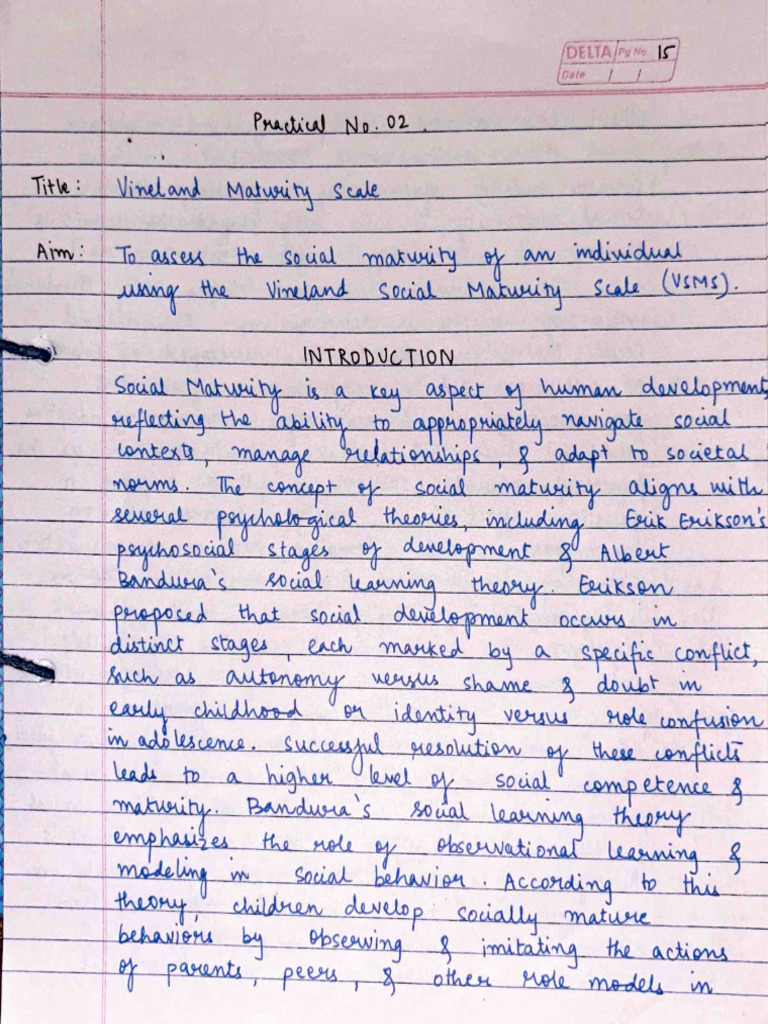 DELTA Pg No. 15
Date / /
Practical No. 02.
Title: Vineland Maturity Scale
Aim: To assess the social maturity of an individual
using the Vineland Social Maturity Scale (VSMS).
INTRODUCTION
Social Maturity is a key aspect of human development,
reflecting the ability to appropriately navigate social
contexts, manage relationships, & adapt to societal
norms. The concept of social maturity aligns with
several psychological theories, including Erik Erikson's
psychosocial stages of development & Albert
Bandura's social learning theory. Erikson
proposed that social development occurs in
distinct stages, each marked by a specific conflict,
such as autonomy versus shame & doubt in
early childhood or identity versus role confusion
in adolescence. Successful resolution of these conflicts
leads to a higher level of social competence &
maturity. Bandura's social learning theory
emphasizes the role of observational learning &
modeling in social behavior. According to this
theory, children develop socially mature
behaviors by observing & imitating the actions
of parents, peers, & other role models in